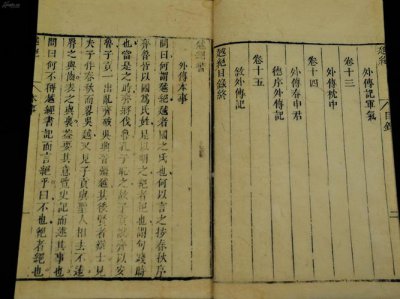 越絕
目錄
二
外傳記軍氣
卷十三
外傳枕中
卷十四
外傳春申君
德序外傳記
卷十五
敘外傳記
越絕目錄終
越絕書
外傳本事
問曰何謂越絕越者國之氏也何以言之按春秋序
齊魯皆以國爲氏姓是以明之絕者絕也謂句踐時
也當是之時齊將伐魯孔子恥之故子貢說齊以安
魯子貢一出亂齊破吳興晉彊越其後賢者辯士見
夫子作春秋而畧吳越又見子貢與聖人相去不遠
脣之與齒表之與裏葢要其意覽史記而述其事也
問曰何不稱越經書記而言絕乎曰不也絕者絕也
越絕
本事